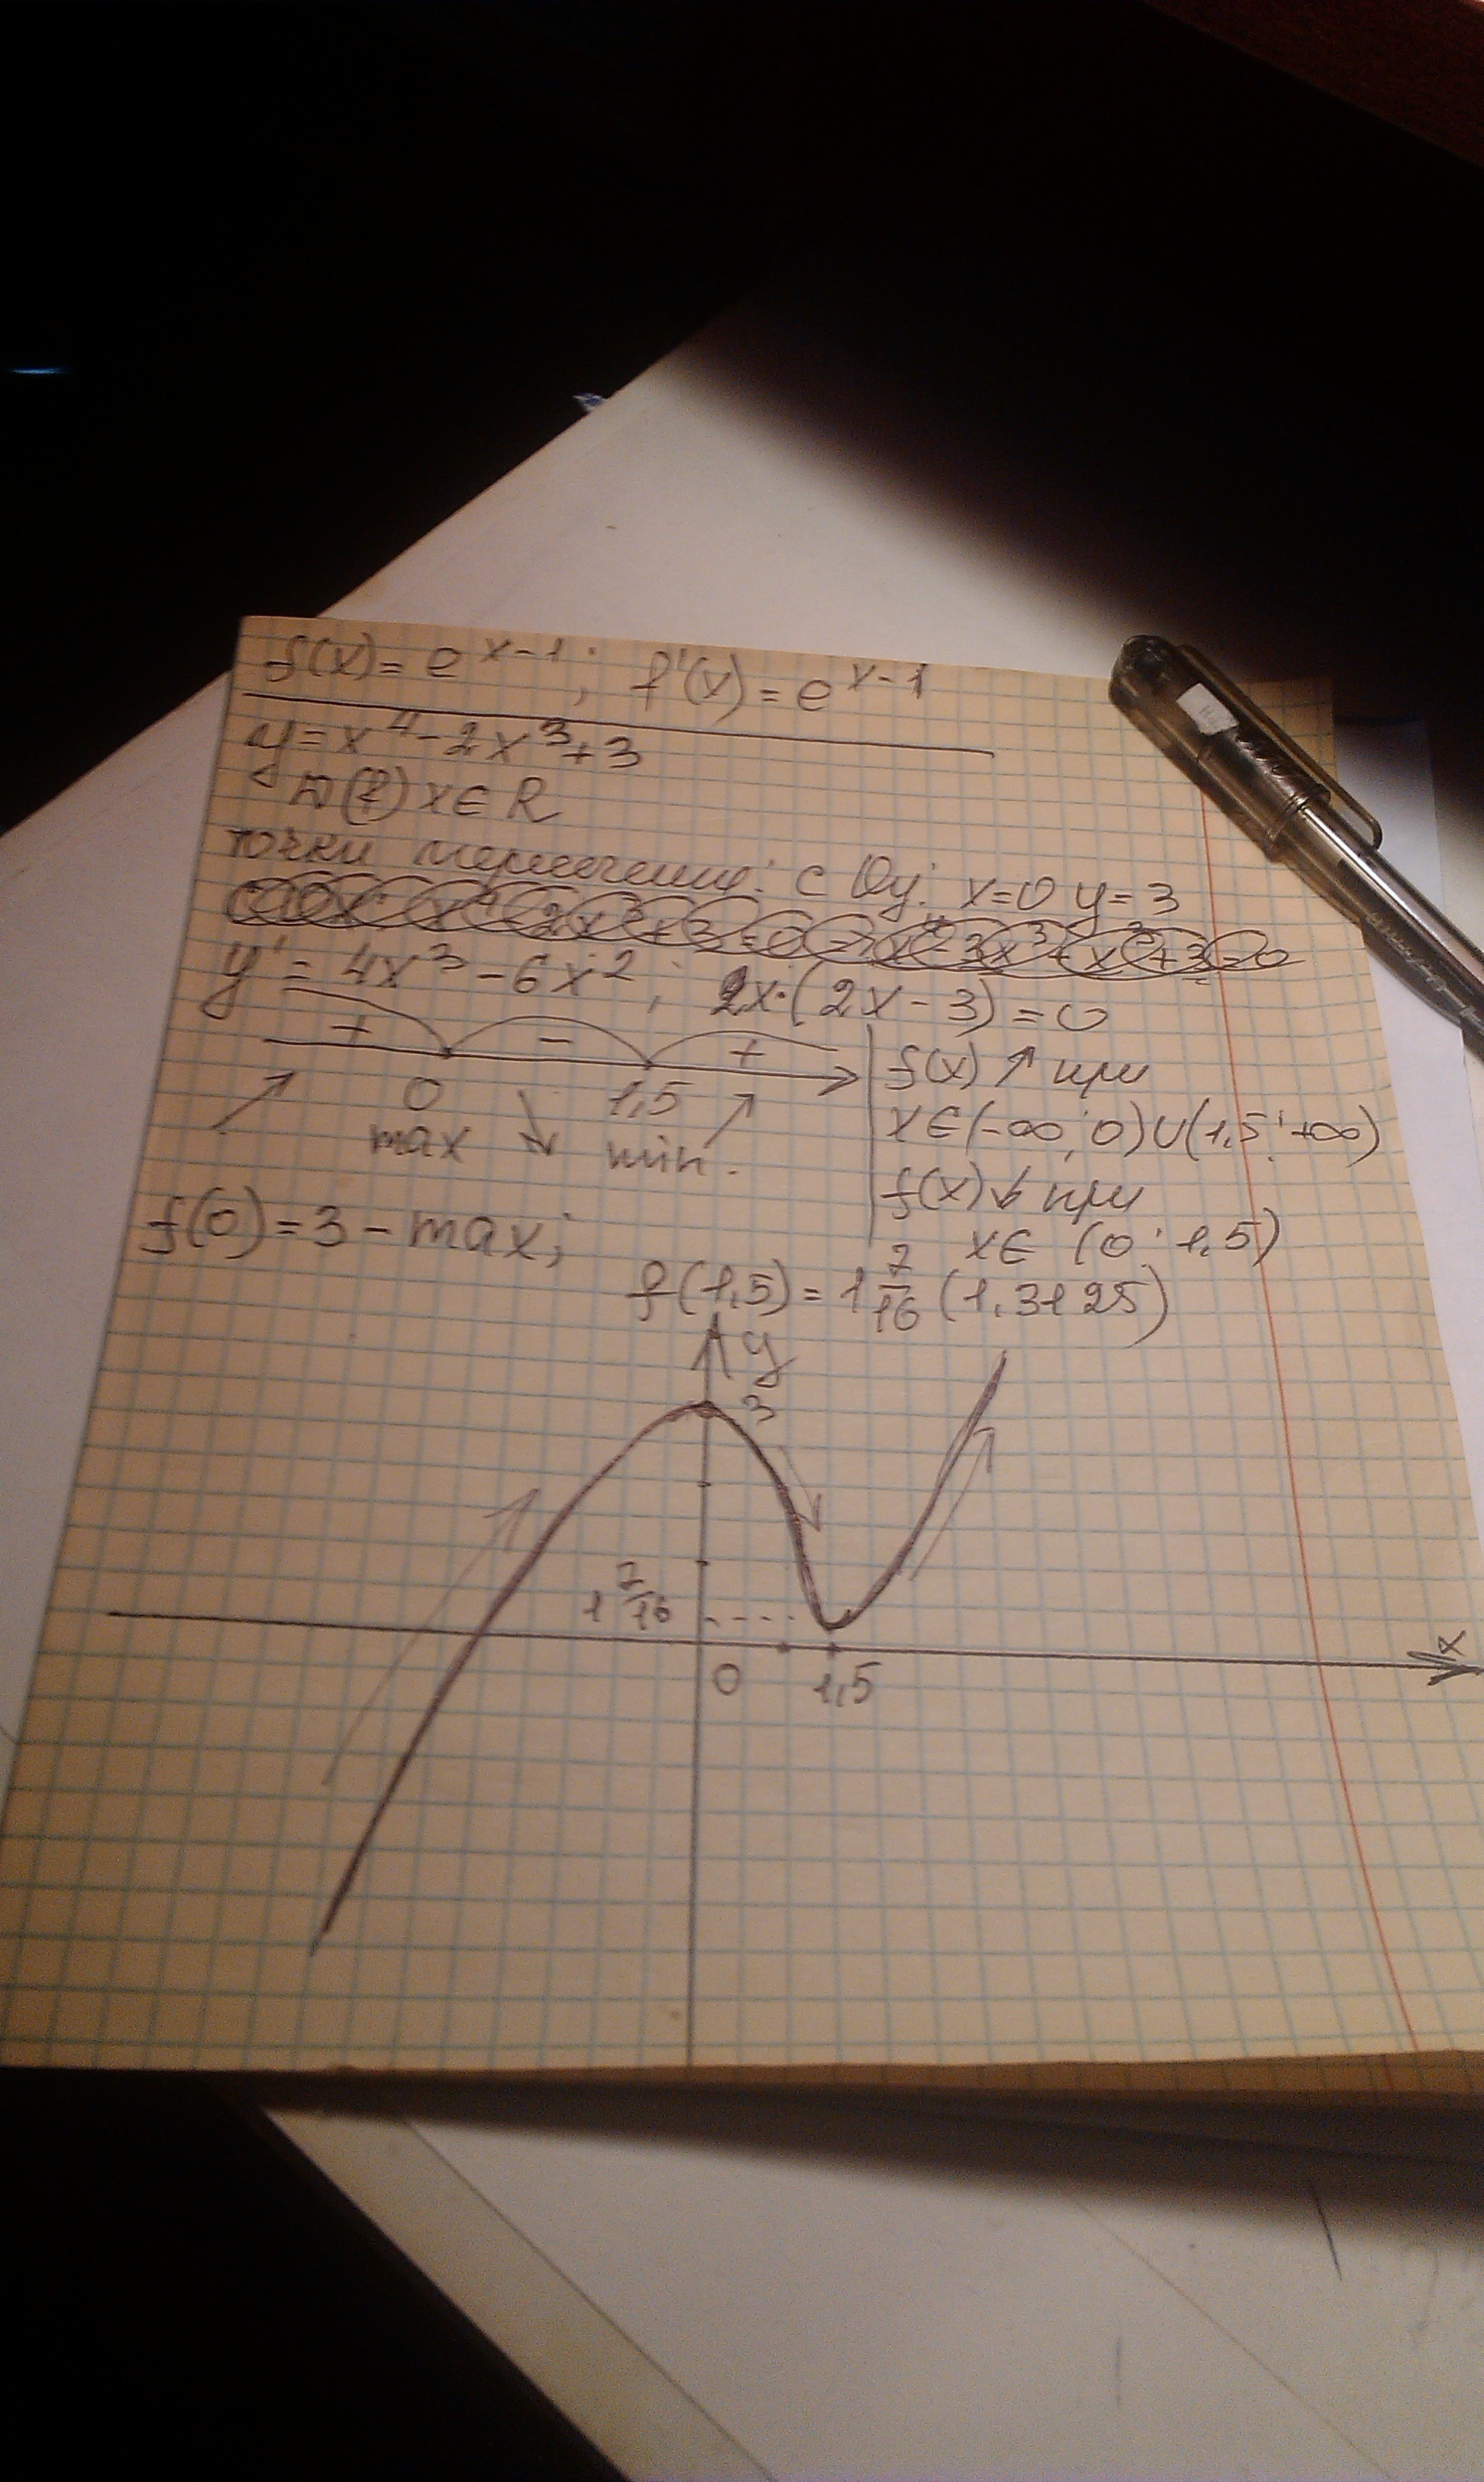 f(x) = e^{x-1}; f'(x) = e^{x-1}
y = x^4 - 2x^3 + 3
D(f) x ∈ R
точки пересечения: с Oy: x=0 y=3
y' = 4x^3 - 6x^2; 2x·(2x-3) = 0
+ - +
0 1,5
max min.
f(x) ↗ при
x ∈ (-∞; 0) ∪ (1,5; +∞)
f(x) ↓ при
x ∈ (0; 1,5)
f(0) = 3 - max;
f(1,5) = 1 7/16 (1,3125)
y
3
1 7/16
0 1,5
x